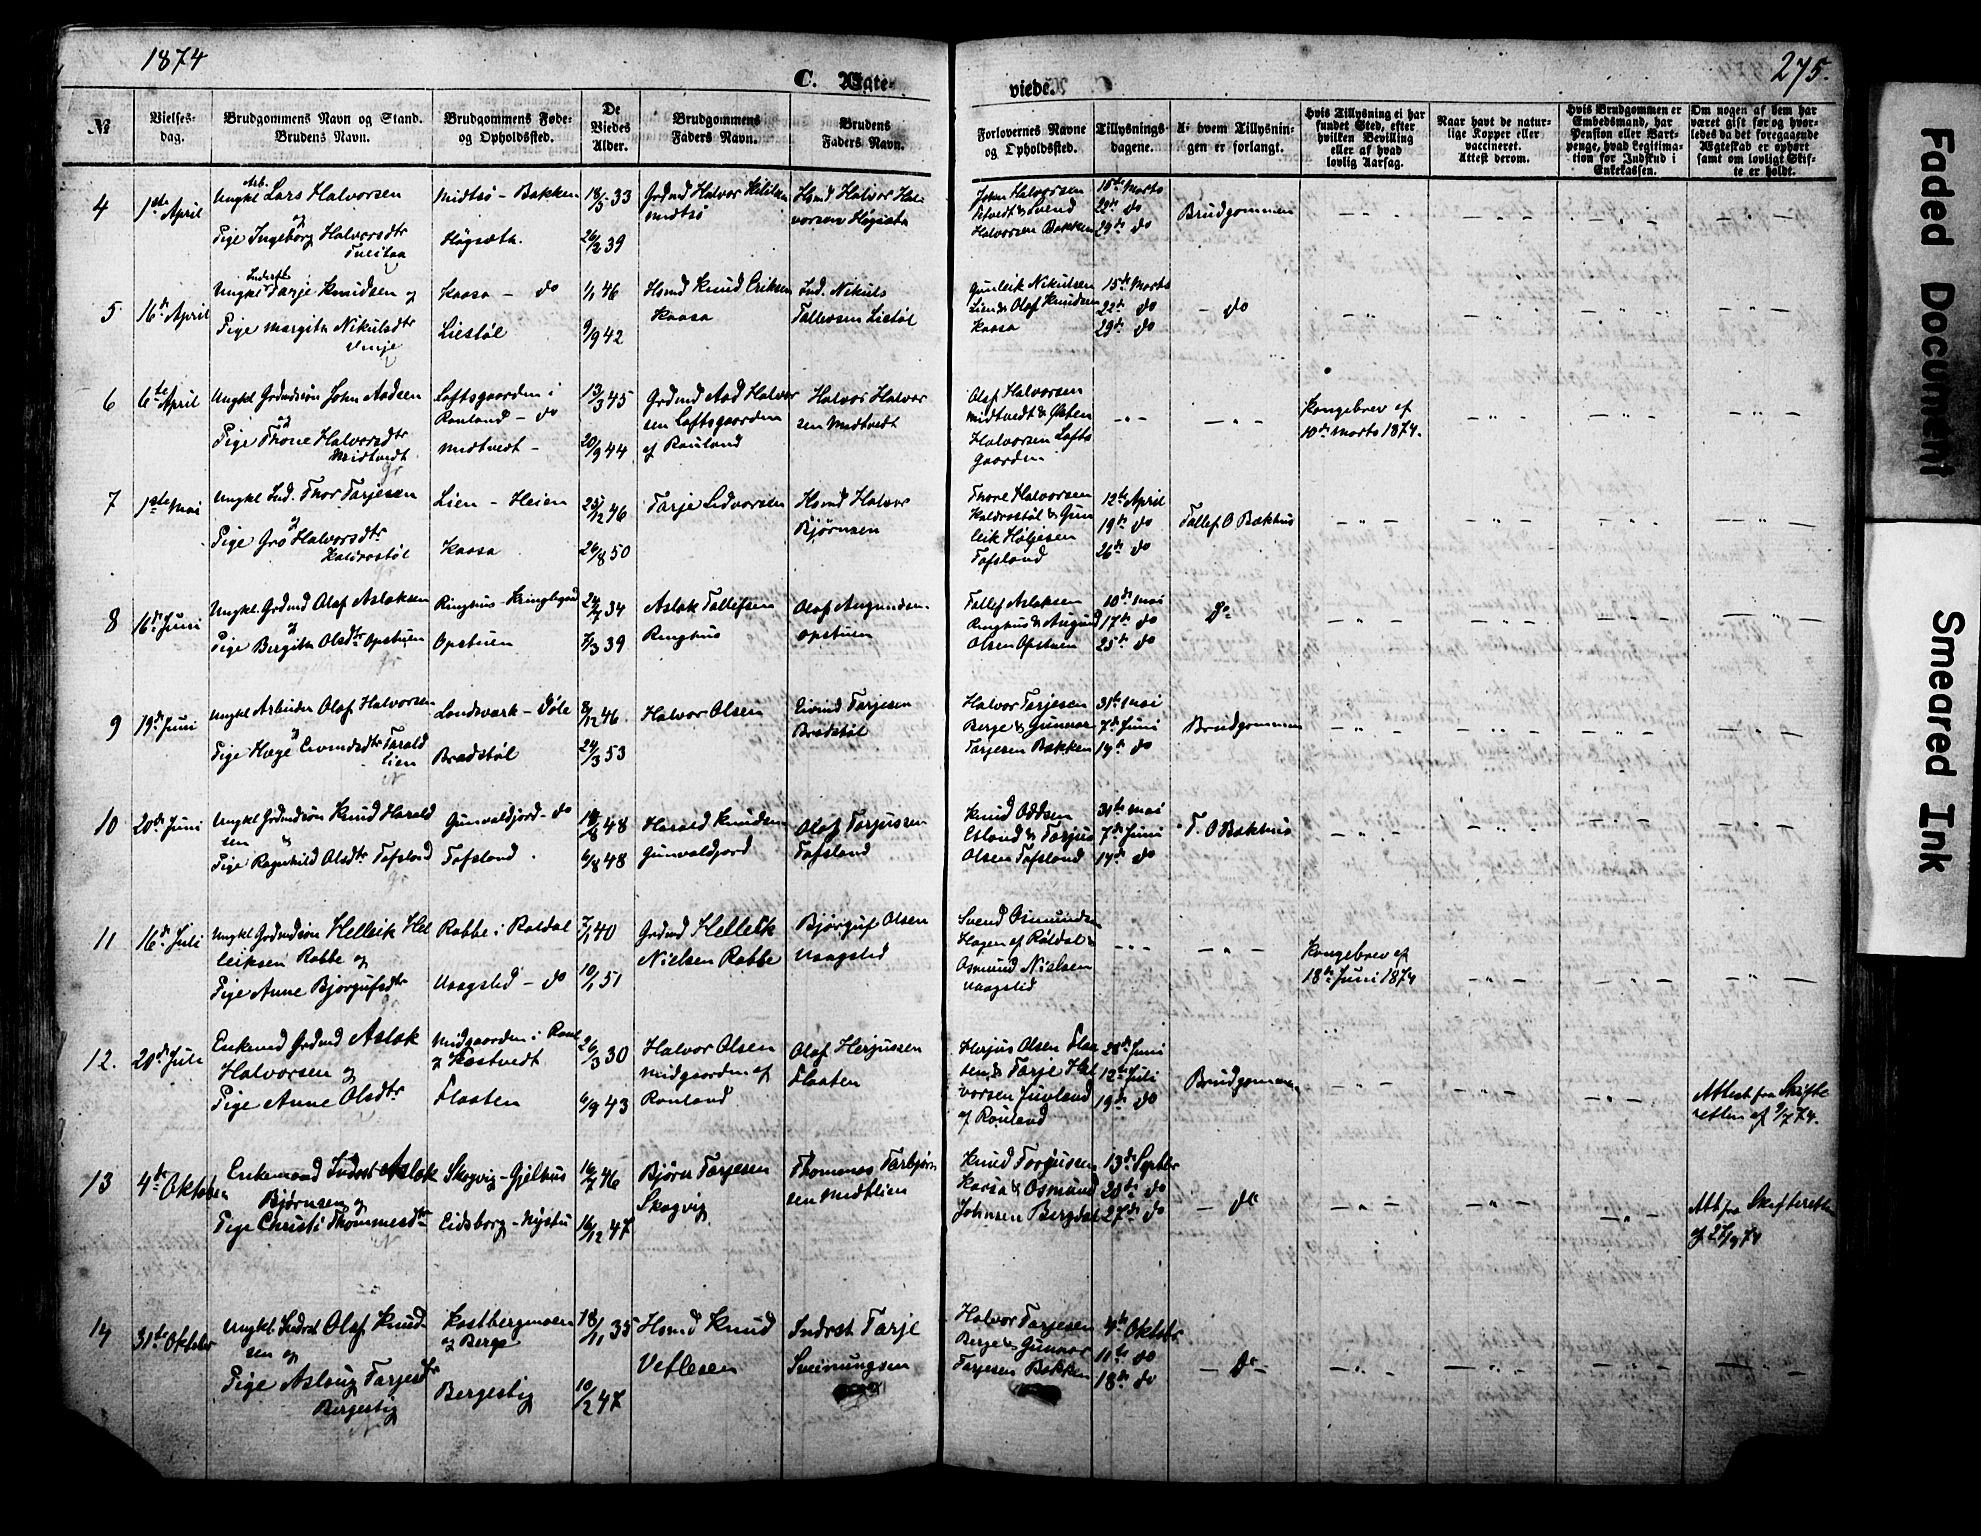 1874
275.
C. Ægte-
viede.
№
Vielses-
dag.
Brudgommens Navn og Stand.
Brudens Navn.
Brudgommens Føde-
og Opholdssted.
De
Viedes
Alder.
Brudgommens
Faders Navn.
Brudens
Faders Navn.
Forlovernes Navne
og Opholdssted.
Tillysnings-
dagene.
Af hvem Tillysnin-
gen er forlangt.
Hvis Tillysning ei har
fundet Sted, efter
hvilken Bevilling
eller af hvad
lovlig Aarsag.
Naar havt de natur-
lige Kopper eller
vaccineret.
Attest derom.
Hvis Brudgommen er
Embedsmand, har
Pension eller Vart-
penge, hvad Legitima-
tion for Indskud i
Enkekassen.
Om nogen af dem har
været gift før og hvor-
ledes da det foregaaende
Ægteskab er ophørt
samt om lovligt Skif-
te er holdt.
4
1ste April
Ungkl Arb. Lars Halvorsen
og
Pige Ingeborg Halvorsdtr
Midtsø - Bakken
Høgsæta.
18/5 33
26/2 39
Grdmd Halvor
Midtsø
Hsmd Halvor Hal-
vorsen Høgsæta
John Halvorsen
& Svend
Halvorsen Bakken
15de Marts
22de do
29de do
Brudgommen
5
16de April
Ungkl Tarje Knudsen og
Pige Margith Nikulsdtr
Vinje
Kaasa - do
Liestøl
1/1 46
9/9 42
Hsmd Knud Eriksen
Kaasa
Ind. Nikuls
Tallevsen Liestøl
Gunleik Nikulsen
Lien & Olaf Knudsen
Kaasa
15de Marts
22de do
29de do
- do
6
6te April
Ungkl Grdmdsøn John Aadsen
og
Pige Thone Halvorsdtr
Midtvedt
Loftsgaarden i
Rauland - do
Midtvedt -
13/3 45
20/9 44
Grdmd Aad Halvor
sen Loftsgaarden
af Rauland
Halvor Halvor
sen Midtvedt
Olaf Halvorsen
Midtvedt & Østen
Halvorsen Lofts
gaarden
Kongebrev af
10de Marts 1874.
7
1ste Mai
Ungkl Ind. Thor Tarjesen
og
Pige Gro Halvorsdtr
Lien - Heien
Kaasa
25/12 46
26/8 50
Tarje Lidvorsen
Hsmd Halvor
Bjørnsen
Thore Halvorsen
& Gun
leik Høljesen
Tofsland
12te April
19de do
26de do
Tallef O Bækhus
8
16de Juni
Ungkl. Grdmd Olaf Aslaksen
og
Pige Bergith Olsdtr Opstuen
Ringhus -
Opstuen
24/7 34
7/3 39
Aslak Tallefsen
Ringhus
Olaf Augundsen
Opstuen
Tallef Aslaksen
Ringhus & Augund
Olsen Opstuen
10de Mai
17de do
25de do
Do
9
19de Juni
Ungkl Arbeider Olaf Halvorsen
og
Pige Hæge Eivindsdtr Tarald
lien
Landsverk - Døle
Brædstøl
8/12 46
24/3 53
Halvor Olsen
Eivind Tarjesen
Brædstøl
Halvor Tarjesen
Berge & Gunnar
Tarjesen Bakken
31te Mai
7de Juni
14de do
Brudgommen
10
20de Juni
Ungkl Grdmdsøn Knud Harald
sen og
Pige Ragnhild Olsdtr Tofsland
Gunvaldjord - do
Tofsland.
6/8 48
Harald Knudsen
Gunvaldjord
Olaf Tarjussen
Tofsland
Knud Oddsen
Esland & Tarjus
Olsen Tofsland
31te Mai
7de Juni
14de do
T. O Bækhus
11
16de Juli
Ungkl Grdmdsøn Helleik Hel
leiksen Rabbe og
Pige Anne Bjørgufsdtr
Rabbe i Røldal
Vaagslid - do
7/1 40
10/1 51
Grdmd Helleik
Nielsen Rabbe
Bjørguf Olsen
Vaagslid
Svend Osmundsen
Hagen af Røldal &
Osmund Nielsen
Vaagslid
Kongebrev af
18de Juni 1874
12.
20de Juli
Enkemd Grdmd Aslak
Halvorsen og
Pige Anne Olsdtr
Midgaarden i Raul
og Kostvedt
Flaaten
26/3 30
6/9 43
Halvor Olsen
Midgaarden af
Rauland
Olaf Herjussen
Flaaten
Herjus Olsen Flaa
ten, & Tarje Hal
vorsen Juvland
af Rauland
28de Juni
12te Juli
19de do
Brudgommen
Attest fra Skifte
retten af 9/7 74.
13
4de Oktober
Enkemand Indrst Aslak
Bjørnsen og
Pige Christi Thommesdtr
Skogvig - Gjelhus
Eidsborg - Nystu
16/7 46
16/12 47
Bjørn Tarjesen
Skogvig
Thommes Tarbjørn
sen Midtlien
Knud Torjussen
Kaasa & Osmund
Johnsen Bergdal
13de Septbr
20de do
27de do
- do
Att fra Skifteretten
14
31te Oktober
Ungkl. Indrst Olaf Knud-
sen og
Pige Aslaug Tarjesdtr
Bergestig
Kostbergmoen
og Berge
Bergestig
18/11 35
10/2 47
Hsmd Knud
Vetlesen
Indrst Tarje
Sveinungsen
Halvor Tarjesen
Berge & Gunnar
Tarjesen Bakken
4de Oktobr
11te do
18de do
- do -
Faded Document
Smeared Ink